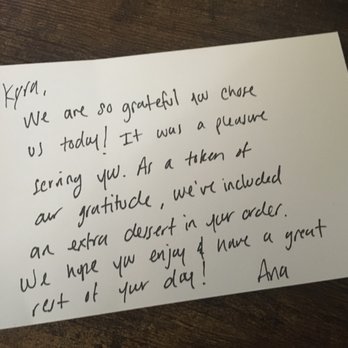 Kyra,
We are so grateful you chose
us today! It was a pleasure
serving you. As a token of
our gratitude, we've included
an extra dessert in your order.
We hope you enjoy & have a great
rest of your day! Ana